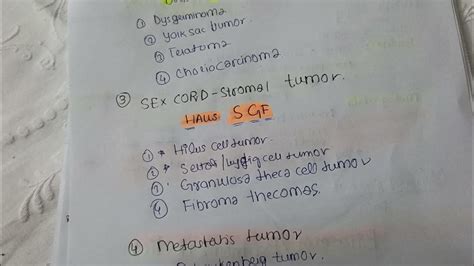 ① Dysgerminoma
② Yolk sac tumor.
③ Teratoma
④ Choriocarcinoma
③ SEX CORD-Stromal tumor.
SGF
① * Hilus cell tumor.
② * Sertoli/leydig cell tumor
③ Granulosa theca cell tumor
④ Fibroma thecomas.
④ Metastatis tumor
tumor.